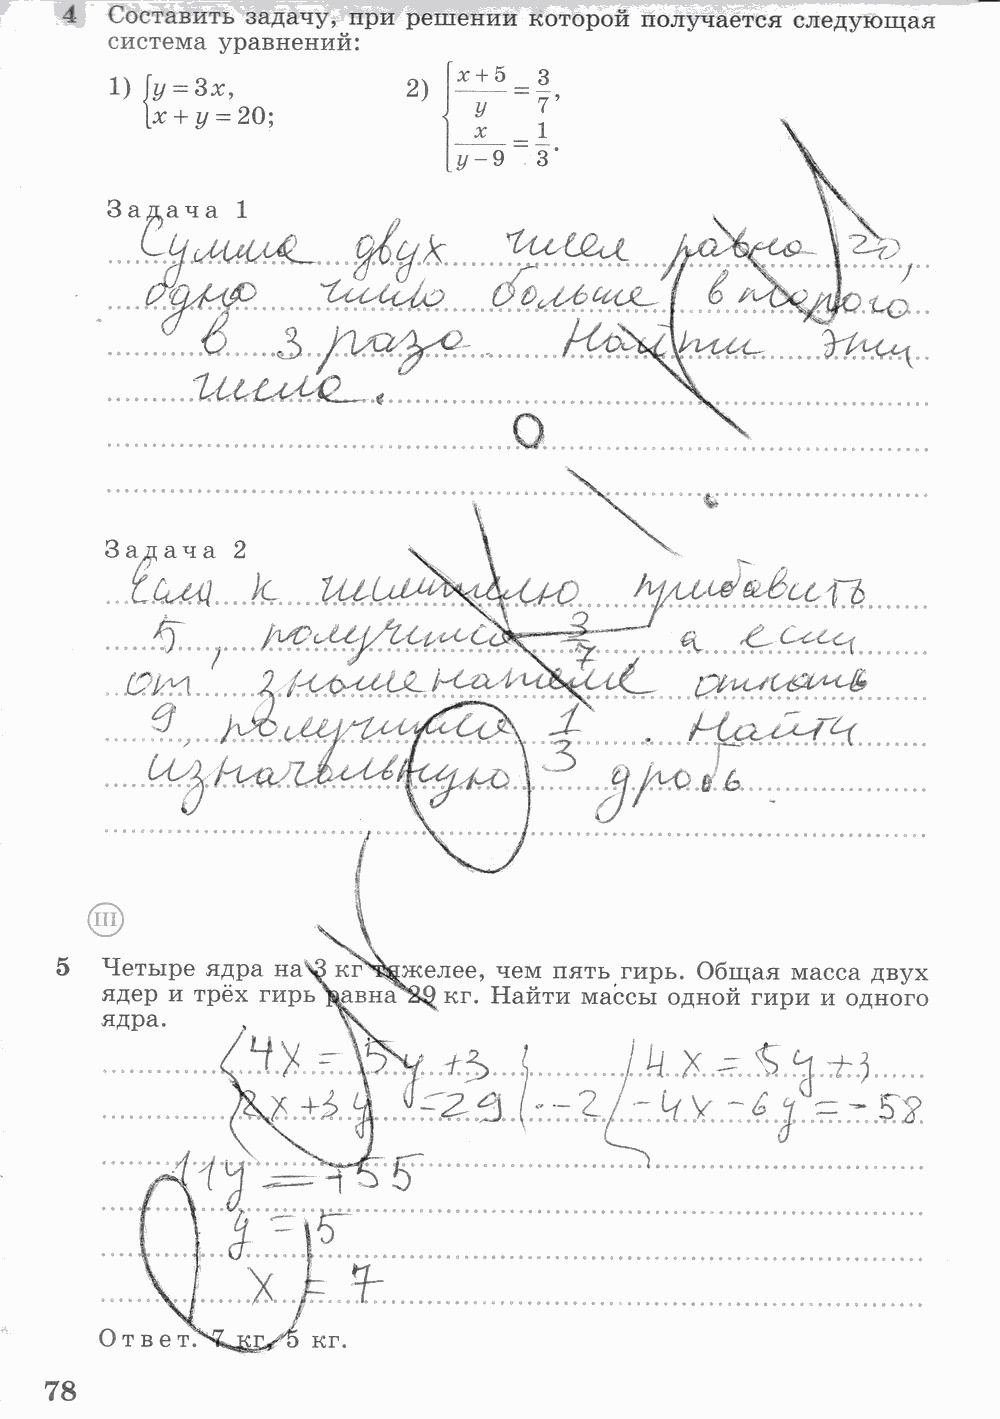 4 Составить задачу, при решении которой получается следующая
система уравнений:
1) { y = 3x,
x + y = 20;
2) { (x + 5)/y = 3/7,
x/(y − 9) = 1/3.
Задача 1
Сумма двух чисел равна 20,
одно число больше второго
в 3 раза. Найти эти
числа.
Задача 2
Если к числителю прибавить
5, получится 3/7, а если
от знаменателя отнять
9, получится 1/3. Найти
изначальную дробь
III
5 Четыре ядра на 3 кг тяжелее, чем пять гирь. Общая масса двух
ядер и трёх гирь равна 29 кг. Найти массы одной гири и одного
ядра.
{ 4x = 5y + 3 { 4x = 5y + 3
2x + 3y = 29 | · −2 −4x − 6y = −58
11y = +55
y = 5
x = 7
Ответ. 7 кг, 5 кг.
78